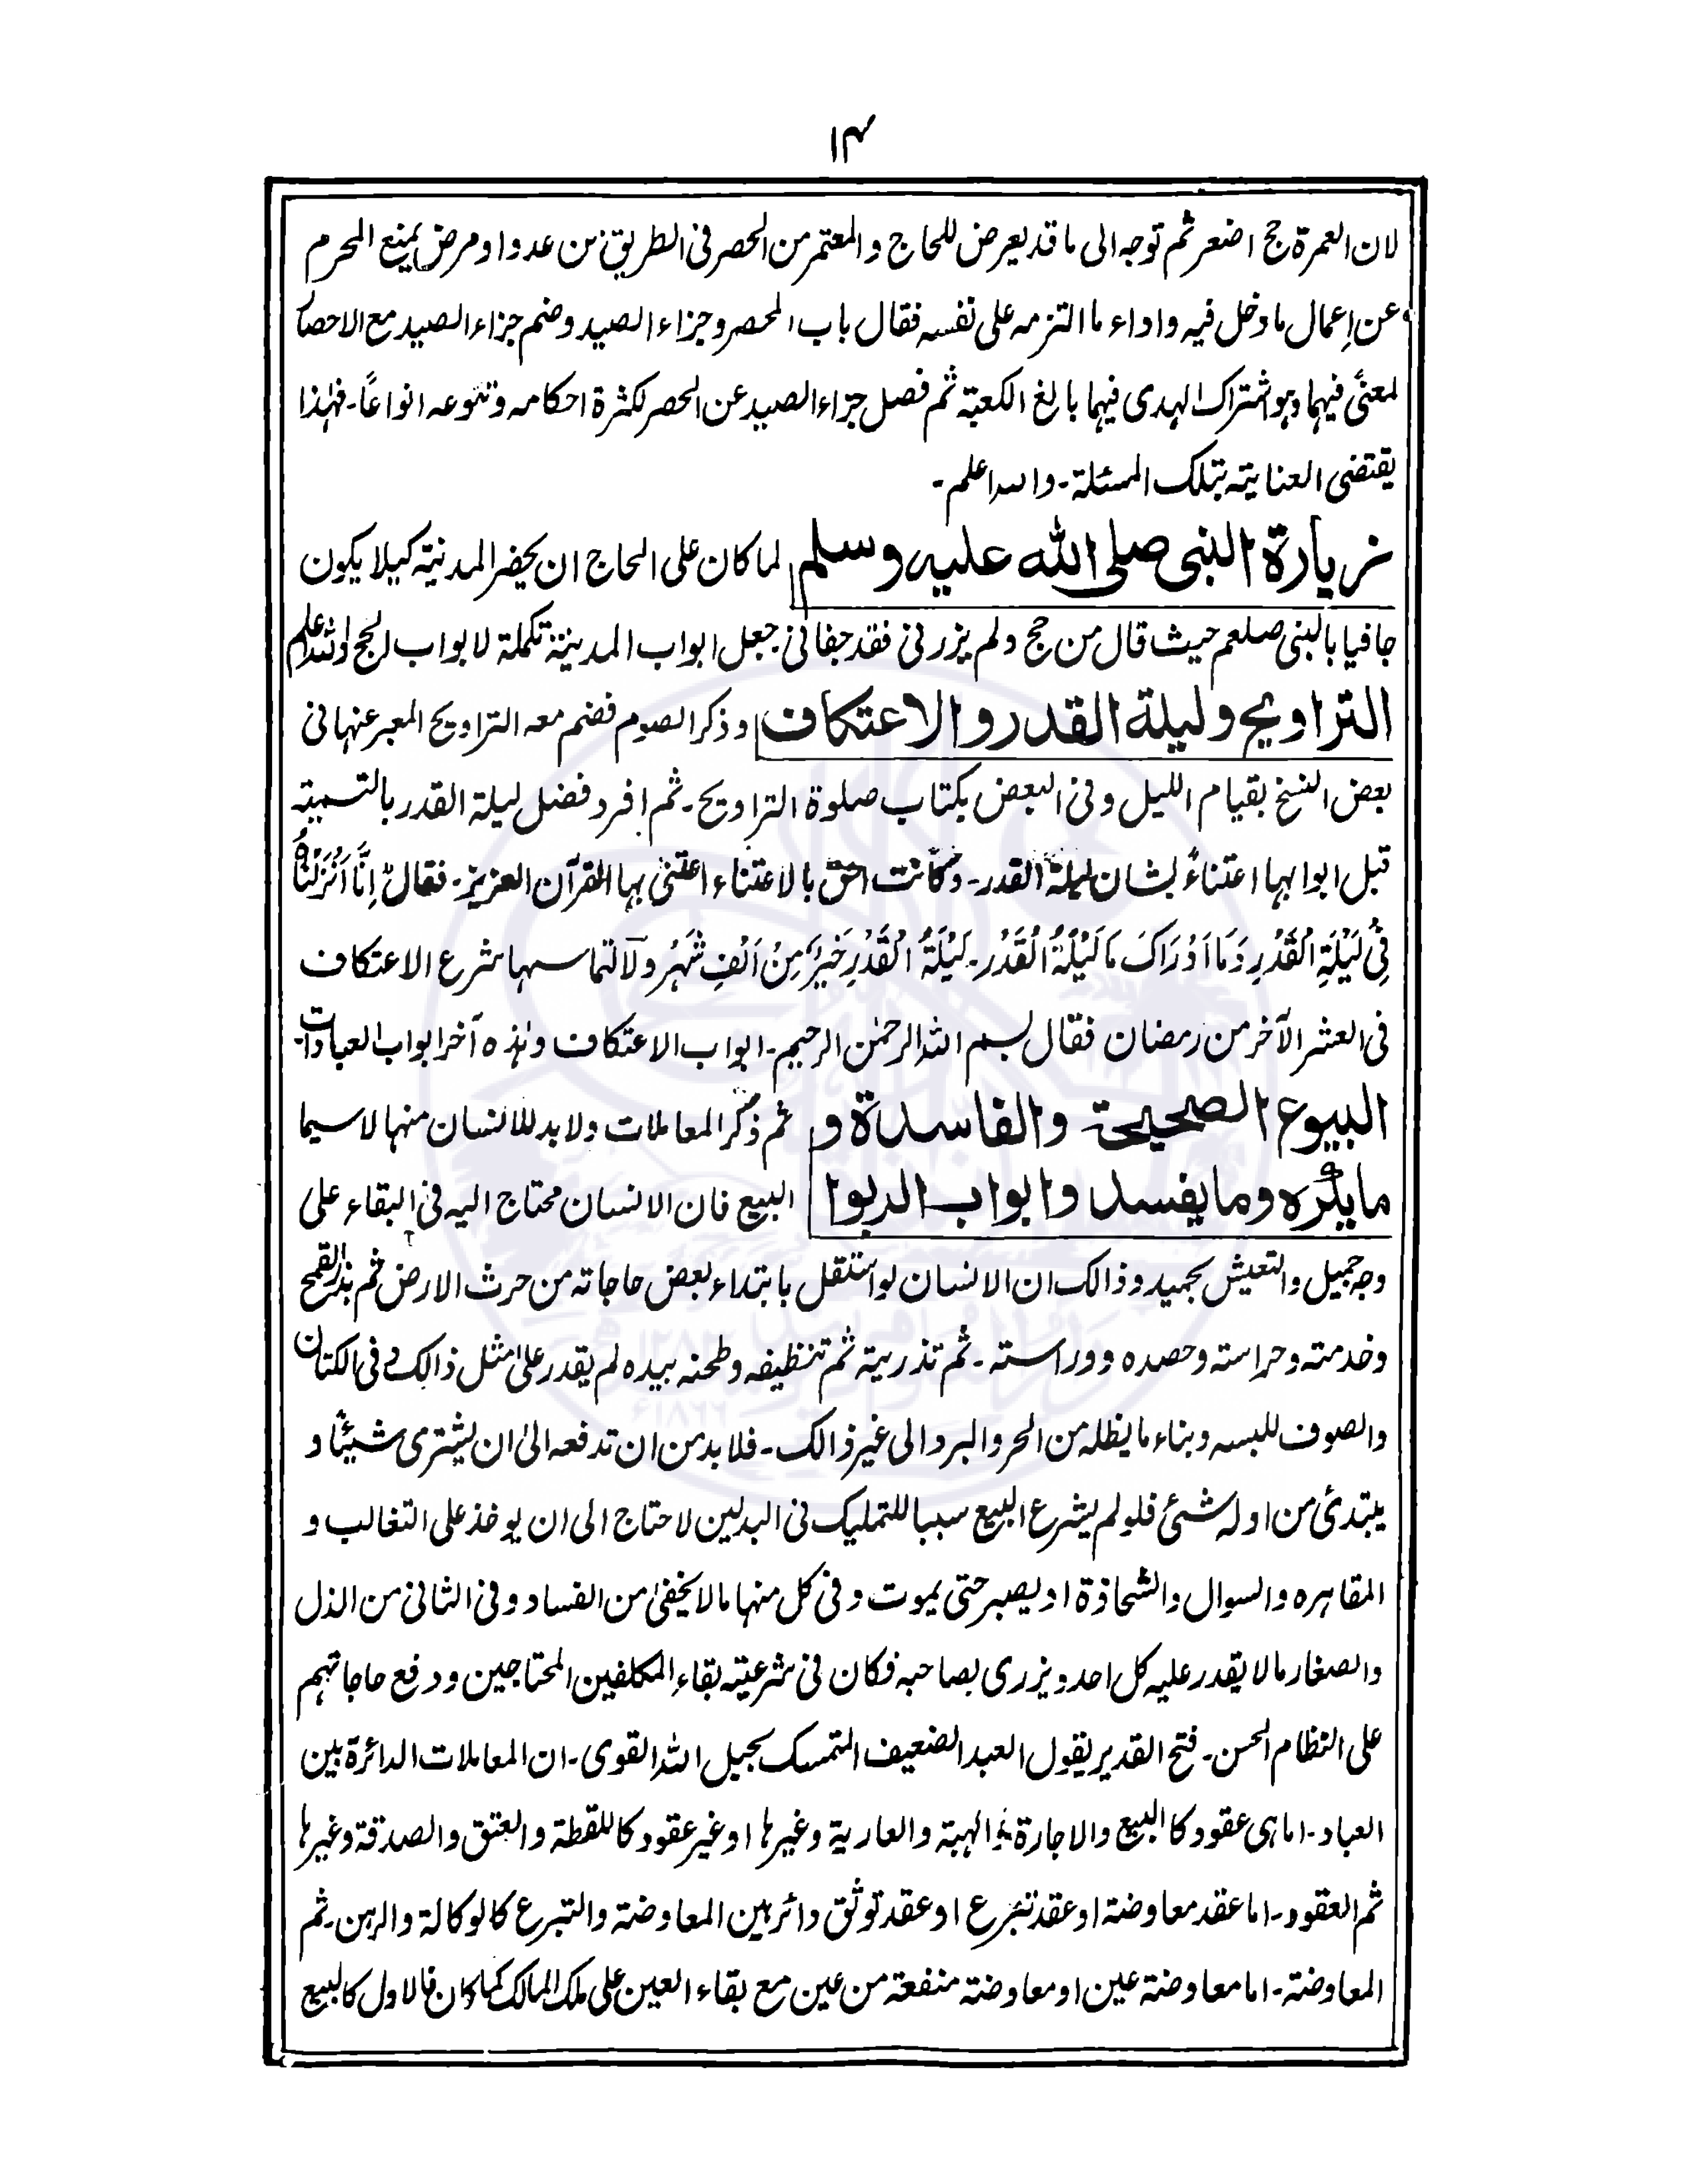 ۱۴
لان العمرة حج اصغر ثم توجه الى ما قد يعرض للحاج والمعتمر من الحصر فى الطريق من عدوا ومرض يمنع المحرم
عن اِعمال ما دخل فيه واداء ما التزمه على نفسه فقال باب المحصر وجزاء الصيد وضم جزاء الصيد مع الاحصا
لمعنىً فيهما وهو اشتراك الهدى فيهما بالغ الكعبة ثم فصل جزاء الصيد عن الحصر لكثرة احكامه وتنوعه انواعًا۔ فهٰذا
يقتضى العناية بتلك المسئلة۔ والله اعلم۔
زيارة النبى صلى الله عليه وسلم لما كان على الحاج ان يحضر المدينة كيلا يكون
جافيا بالنبى صلعم حيث قال من حج ولم يزرنى فقد جفانى جعل ابواب المدينة تكملة لابواب الحج والله اعلم
التراويح وليلة القدر والاعتكاف وذكر الصوم فضم معه التراويح المعبر عنها فى
بعض النسخ بقيام الليل وفى البعض بكتاب صلوة التراويح۔ ثم افرد فضل ليلة القدر بالتسمية
قبل ابوابها اعتناءً بشان ليلة القدر۔ وكانت احق بالاعتناء اعتنى بها القرآن العزيز۔ فقال اِنَّا اَنْزَلْنٰهُ
فِىْ لَيْلَةِ الْقَدْرِ وَمَا اَدْرَاكَ مَا لَيْلَةُ الْقَدْرِ۔ لَيْلَةُ الْقَدْرِ خَيْرٌ مِنْ اَلْفِ شَهْرٍ ولالتماسها شرع الاعتكاف
فى العشر الآخر من رمضان فقال بسم الله الرحمٰن الرحيم۔ ابواب الاعتكاف وهٰذه آخر ابواب العبادات۔
البيوع الصحيحة والفاسدة و ثم ذكر المعاملات ولا بد للانسان منها لاسيما
مايكره وما يفسد وابواب الربوا البيع فان الانسان محتاج اليه فى البقاء على
وجه جميل والتعيش بحميد وذالك ان الانسان لو استقل بابتداء بعض حاجاته من حرث الارض ثم بذر القمح
وخدمته وحراسته وحصده ودراسته۔ ثم تذريية ثم تنظيفه وطحنه بيده لم يقدر علىٰ مثل ذالك فى الكتان
والصوف للبسه وبناء ما يظله من الحر والبرد الى غير ذالك۔ فلا بد من ان تدفعه الىٰ ان يشترى شيئًا و
يبتدئ من اوله شئ فلو لم يشرع البيع سببا للتمليك فى البدلين لاحتاج الى ان يوخذ على التغالب و
المقاهره والسوال والشحاذة او يصبر حتى يموت وفى كل منها مالا يخفىٰ من الفساد وفى الثانى من الذل
والصغار مالا يقدر عليه كل احد ويزرى بصاحبه فكان فى شرعيته بقاء المكلفين المحتاجين ودفع حاجاتهم
على النظام الحسن۔ فتح القدير يقول العبد الضعيف المتمسك بحبل الله القوى۔ ان المعاملات الدائرة بين
العباد۔ اما هى عقود كالبيع والاجارة والهبة والعارية وغيرها او غير عقود كاللقطة والعتق والصدقة وغيرها
ثم العقود۔ اما عقد معاوضة او عقد تبرع او عقد توثق دائر بين المعاوضة والتبرع كالوكالة والرهن۔ ثم
المعاوضة۔ اما معاوضة عين او معاوضة منفعة من عين مع بقاء العين على ملك المالك كما كان فالاول كالبيع